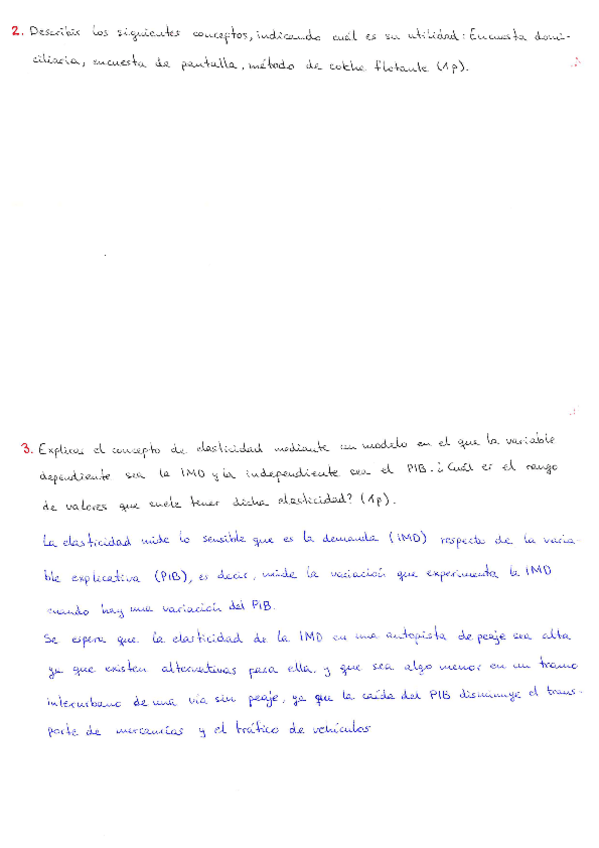 2. Describir los siguientes conceptos, indicando cuál es su utilidad: Encuesta domi-
ciliaria, encuesta de pantalla, método de coche flotante (1p).
3. Explicar el concepto de elasticidad mediante un modelo en el que la variable
dependiente sea la IMD y la independiente sea el PIB. ¿Cuál es el rango
de valores que suele tener dicha elasticidad? (1p).
La elasticidad mide lo sensible que es la demanda (IMD) respecto de la varia-
ble explicativa (PIB), es decir, mide la variación que experimenta la IMD
cuando hay una variación del PIB.
Se espera que la elasticidad de la IMD en una autopista de peaje sea alta
ya que existen alternativas para ella, y que sea algo menor en un tramo
interurbano de una vía sin peaje, ya que la caída del PIB disminuye el trans-
porte de mercancías y el tráfico de vehículos